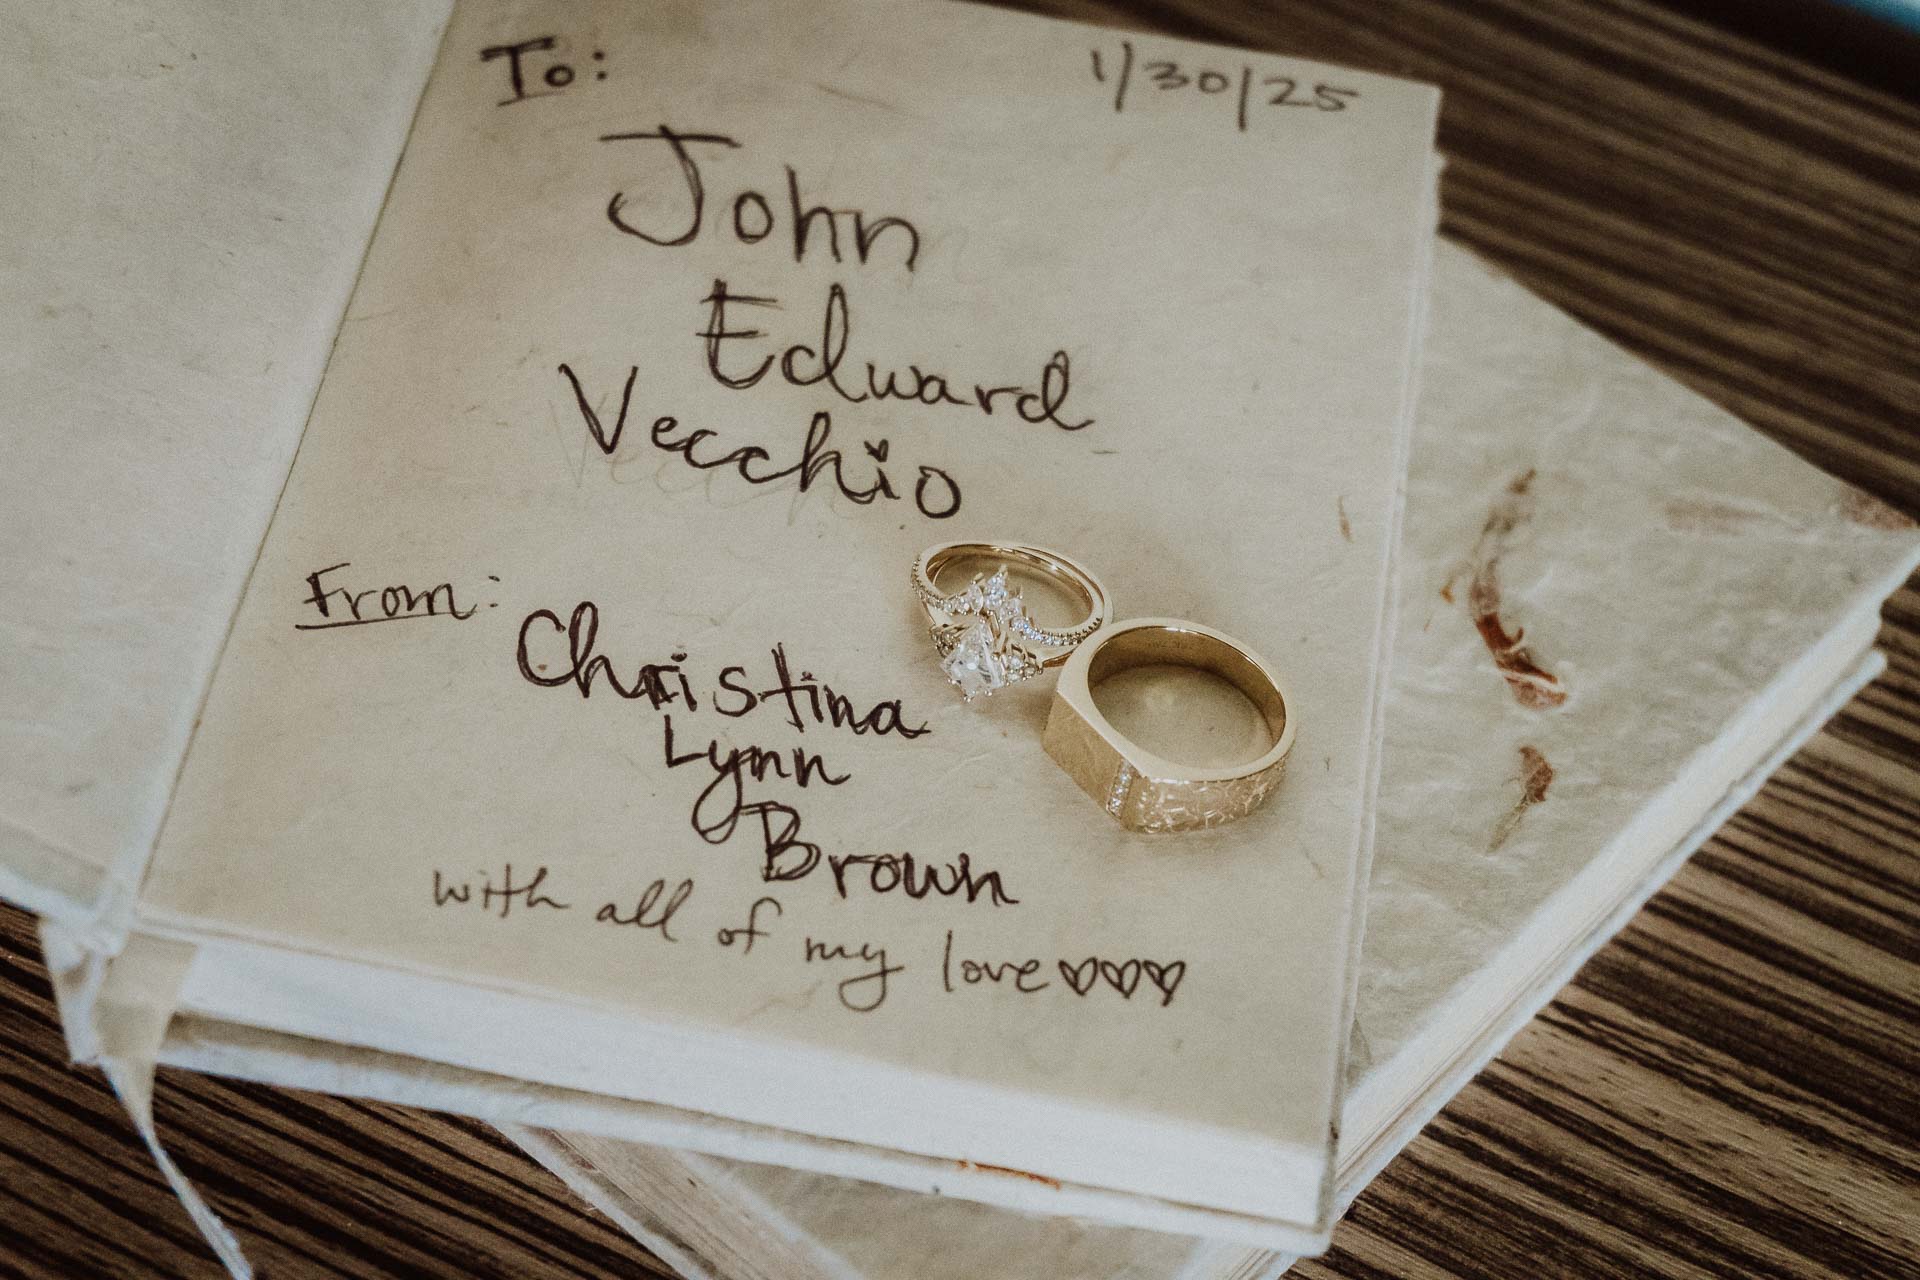 To:
1/30/25
John
Edward
Vecchio
From:
Christina
Lynn
Brown
with all of my love♡♡♡